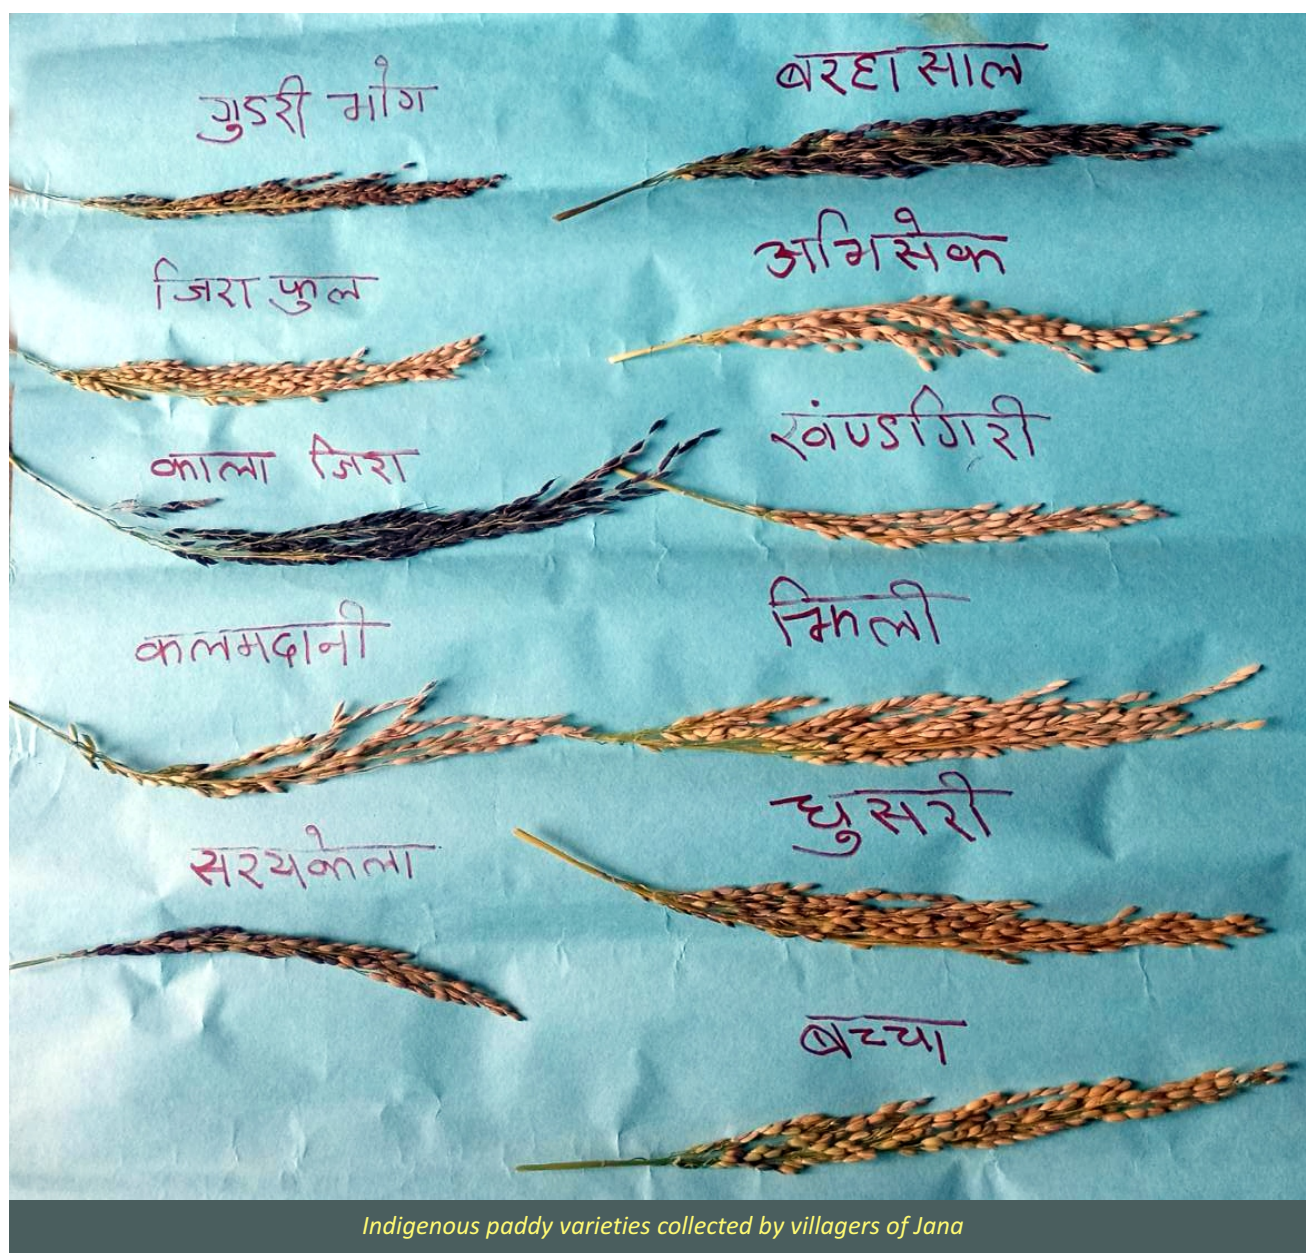 गुडरी भोग
जिरा फुल
काला जिरा
कलमदानी
सरयकेला
बरहा साल
अभिसेक
खंण्डगिरी
झिली
घुसरी
बच्चा
Indigenous paddy varieties collected by villagers of Jana